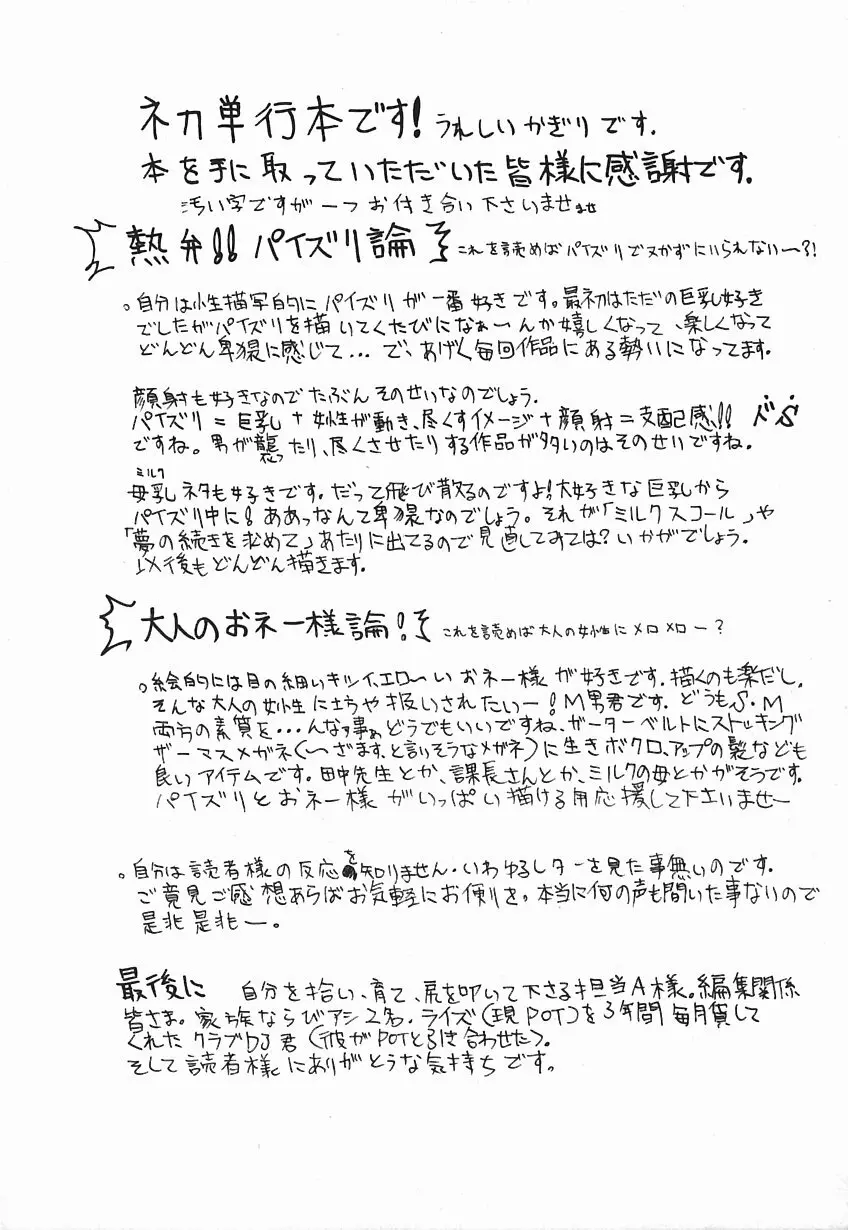 ネカ単行本です! うれしいかぎりです.
本を手に取っていただいた皆様に感謝です.
汚い字ですが一つお付き合い下さいませませ
熱弁!! パイズリ論 これを読めばパイズリでヌかずにいられないー?!
。自分は性描写的にパイズリが一番好きです。最初はただの巨乳好き
でしたがパイズリを描いてくたびになぁーんか嬉しくなって、楽しくなって
どんどん卑猥に感じて... で、あげく毎回作品にある勢いになってます.
顔射も好きなのでたぶんそのせいなのでしょう.
パイズリ = 巨乳 + 女性が動き、尽くすイメージ + 顔射 = 支配感!! ドS
ですね。男が襲ったり、尽くさせたりする作品が多いのはそのせいですね.
ミルク
母乳ネタも好きです。だって飛び散るのですよ!大好きな巨乳から
パイズリ中に!ああっなんて卑猥なのでしょう。それが「ミルクスコール」や
「夢の続きを求めて」あたりに出てるので見直してみては?いかがでしょう.
以後もどんどん描きます.
大人のおネー様論! これを読めば大人の女性にメロメロー?
。絵的には目の細いキツイ、エロ〜いおネー様が好きです.描くのも楽だし.
そんな大人の女性に土ちや扱いされたいー!M男君です. どうもS・M
両方の素質を...んなァ事ぁどうでもいいですね、ガーターベルトにストッキング
ザーマスメガネ(〜ざます、と言いそうなメガネ)に生きボクロ、アップの髪なども
良いアイテムです.田中先生とか、課長さんとか、ミルクの母とかがそうです.
パイズリとおネー様がいっぱい描ける用応援して下さいませー
。自分は読者様の反応を知りません.いわゆるレターを見た事無いのです.
ご意見ご感想あらばお気軽にお便りを,本当に何の声も聞いた事ないので
是非是非ー。
最後に 自分を拾い、育て、尻を叩いて下さる担当A様。編集関係
皆さま。家族ならびアシ2名.ライズ(現POT)を3年間毎月貸して
くれたクラブDJ君(彼がPOTと引き合わせた)。
そして読者様にありがとうな気持ちです。